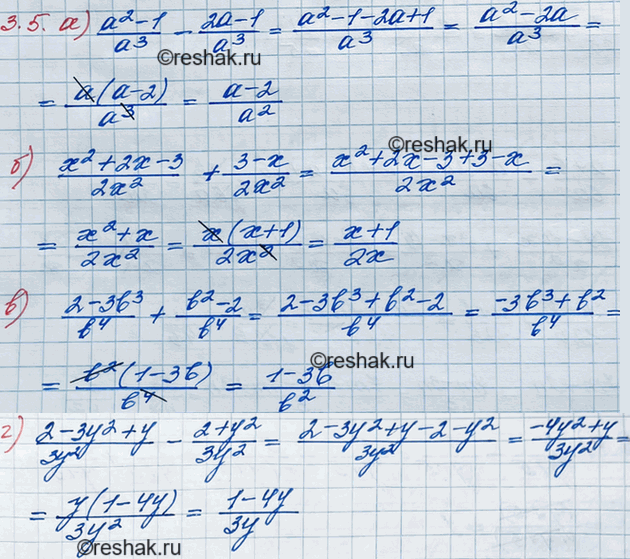 3.5. а) (a²-1)/a³ - (2a-1)/a³ = (a²-1-2a+1)/a³ = (a²-2a)/a³ =
©reshak.ru
= a(a-2)/a³ = (a-2)/a²
©reshak.ru
б) (x²+2x-3)/2x² + (3-x)/2x² = (x²+2x-3+3-x)/2x² =
= (x²+x)/2x² = x(x+1)/2x² = (x+1)/2x
в) (2-3b³)/b⁴ + (b²-2)/b⁴ = (2-3b³+b²-2)/b⁴ = (-3b³+b²)/b⁴ =
©reshak.ru
= b²(1-3b)/b⁴ = (1-3b)/b²
г) (2-3y²+y)/3y² - (2+y²)/3y² = (2-3y²+y-2-y²)/3y² = (-4y²+y)/3y² =
= y(1-4y)/3y² = (1-4y)/3y
©reshak.ru